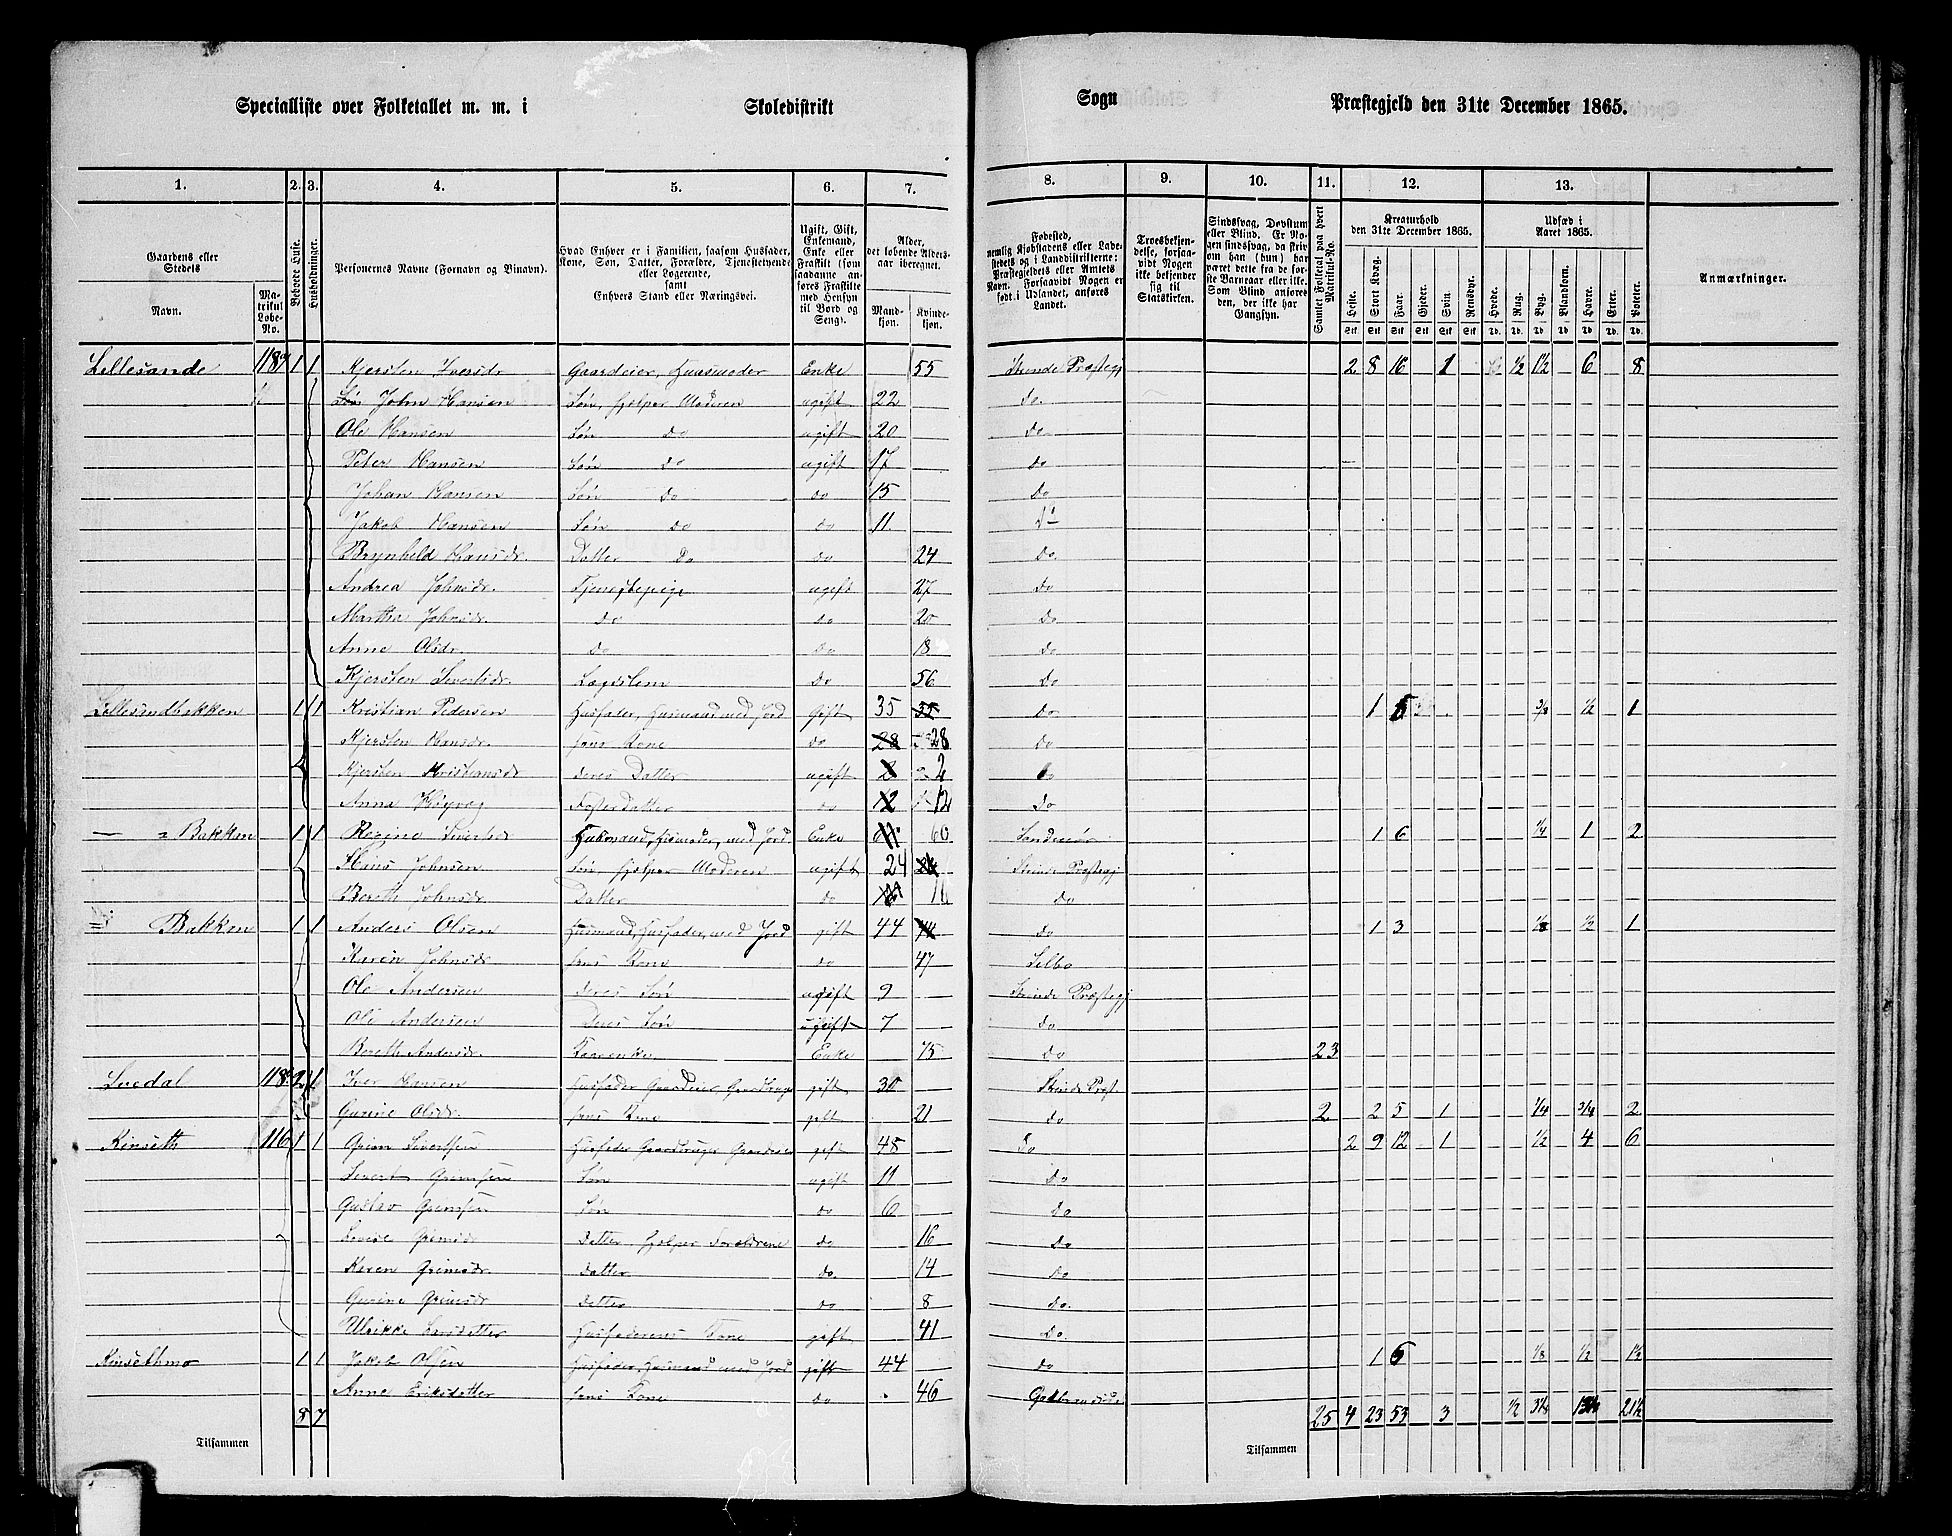 Specialliste over Folketallet m. m. i Skoledistrikt Sogn Præstegjeld den 31te December 1865.
1. 2. 3. 4. 5. 6. 7. 8. 9. 10. 11. 12. 13.
Gaardens eller Stedets
Navn.
Matrikul Løbe-No.
Beboede Huse.
Husholdninger.
Personernes Navne (Fornavn og Binavn).
Hvad Enhver er i Familien, saasom Husfader, Kone, Søn, Datter, Forældre, Tjenestetyende eller Logerende, samt Enhvers Stand eller Næringsvei.
Ugift, Gift, Enkemand, Enke eller Fraskilt (som saadanne anføres Fraskilte med Hensyn til Bord og Seng).
Alder, det løbende Aldersaar iberegnet.
Mandkjøn. Kvindekjøn.
Fødested, nemlig Kjøbstadens eller Ladestedets og i Landdistrikterne: Præstegjeldets eller Amtets Navn. Forsaavidt Nogen er født i Udlandet, anføres Landet.
Troesbekjendelse, forsaavidt Nogen ikke bekjender sig til Statskirken.
Sindssvag, Døvstum eller Blind. Er Nogen sindssvag, da skriv om han (hun) har været dette fra de første Barneaar eller ikke. Som Blind anføres den, der ikke har Gangsyn.
Samlet Folketal paa hvert Matrikul-No.
Kreaturhold den 31te December 1865.
Heste. Stort Kvæg. Faar. Gjeder. Svin. Rensdyr.
Udsæd i Aaret 1865.
Hvede. Rug. Byg. Blandkorn. Havre. Erter. Poteter.
Anmærkninger.
Lillesande 118 1 1 Kjersten Iversdr Gaardeier, Huusmoder Enke 55 Strinde Præstegj 2 8 16 1 1/2 1½ 6 8
John Hansen Søn, hjelper Moderen ugift 22 do.
Ole Hansen Søn Do ugift 20 do
Peter Hansen Søn Do ugift 17 do
Johan Hansen Søn Do do 15 Do
Jakob Hansen Søn Do do 11 Do
Brynhild Hansdr. Datter Do do 24 Do.
Andrea Johnsdr. Tjenestepige ugift 27 Do
Martha Johnsdr. Do Do 20 Do
Anne Olsdr. Do Do 18 Do
Kjersten Sivertsdr. Lægdslem Do 56 Do
Lillesandbakken 1 1 Kristian Pedersen Husfader, Husmand med Jord Gift 35 Do 1 5 ½ 1
Kjersten Hansdr. hans Kone do 28 Do
Kjersten Kristiansdr deres Datter ugift 2 Do
Anna Foster Datter do 12 Do
Bakken 1 1 Regine Enke 60 1 6 1/4 1 2
Johnsen Søn, hjelper Moderen ugift 24 Strinde Præstegj
Bereth Johnsdr. Datter do Do
Bakken 1 1 Anders Olsen Husmand, Husfader, med Jord gift 44 Do 1 3 1/8 ½ 1
Karen Johnsdr hans Kone do 47 Selbo
Ole Andersen deres Søn ugift 9 Strinde Præstegj
Ole Andersen Deres Søn ugift 7 Do
Bereth Andersdr. Enke 75 Do 23
118 2 1 Iver Hansen Husfader Gaardeier gift 30 Strinde Præst.
Gurine Olsdr. hans Kone gift 21 Do 2 2 5 1 1/4 3/4 2
Kinseth 116 1 1 Grim Sivertsen Husfader Gaardbruger Gaardeier gift 48 Do 2 9 12 1 ½ 4 6
Sivert Grimsen Søn ugift 11 Do
Gustav Grimsen Søn do 6 Do
Grimsdr Datter hjelper Forældrene do 16 Do
Karen Grimsdr. Datter do. 14 Do
Gurine Grimsdr Datter do 8 Do.
Ulrikke Larsdatter Husfaderens Kone gift 41 Do.
Kinsethmo 1 1 Jakob Olsen Husfader, Husmand med Jord gift 44 do 1 6 1/8 ½ 1½
Anne Eriksdatter hans Kone do 46
Tilsammen 8 7
Tilsammen 25 4 23 53 3 ½ 21½